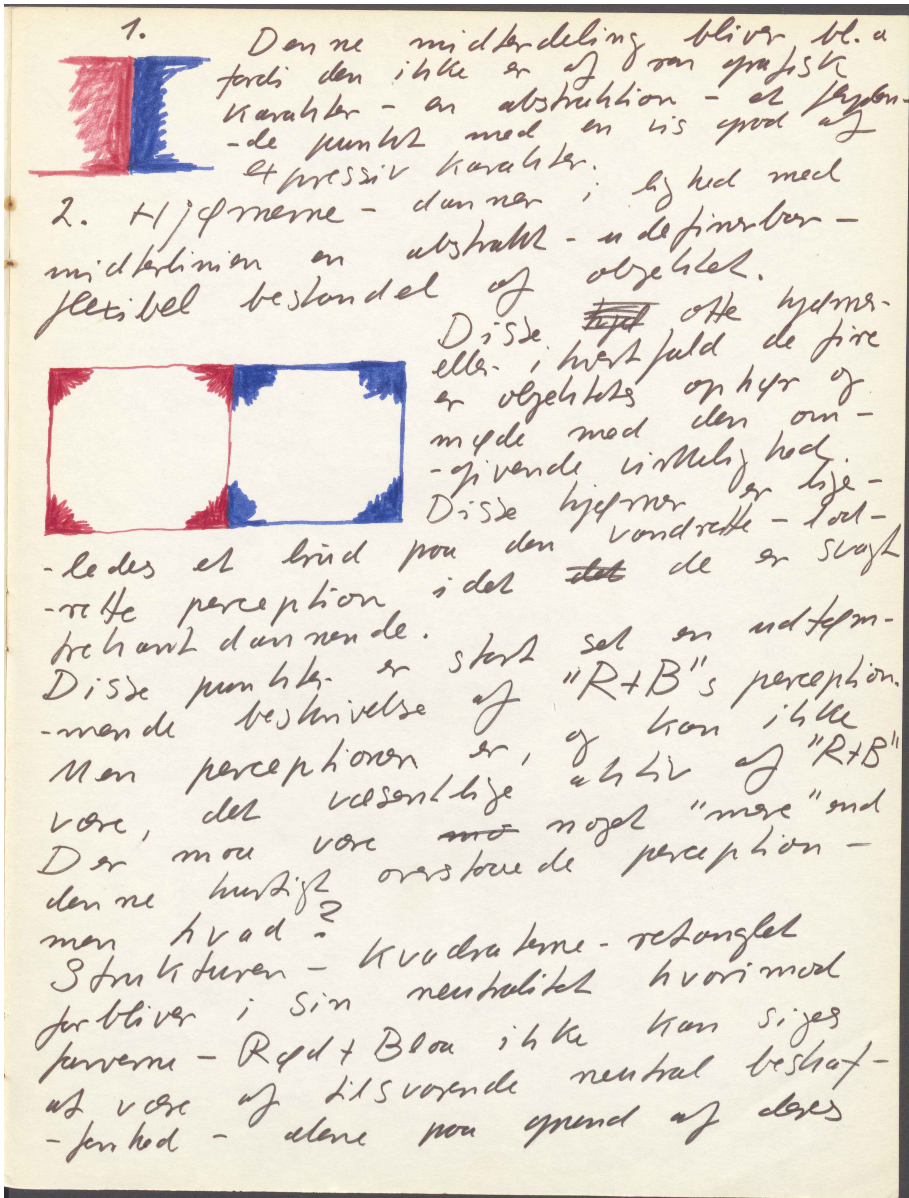 1.
Denne midterdeling bliver bl.a
fordi den ikke er af ren grafisk
karakter - en abstraktion - et flyden-
-de punkt med en vis grad af
expressiv karakter.
2. Hjørnerne - danner i lighed med
midterlinien en abstrakt - udefinerbar -
flexibel bestandel af objektet.
Disse otte hjørner
eller i hvert fald de fire
er objektets ophør og
møde med den om-
-givende virkelighed.
Disse hjørner er lige-
-ledes et brud paa den vandrette - lod-
-rette perception idet de er svagt
trekantdannende.
Disse punkter er stort set en udtøm-
-mende beskrivelse af "R+B"s perception.
Men perceptionen er, og kan ikke
være, det væsentlige aktiv af "R+B"
Der maa være noget "mere" end
denne hurtigt overstaaede perception -
men hvad?
Strukturen - kvadraterne - retanglet
forbliver i sin neutralitet hvorimod
farverne - Rød + Blaa ikke kan siges
at være af tilsvarende neutral beskaf-
-fenhed - alene paa grund af deres